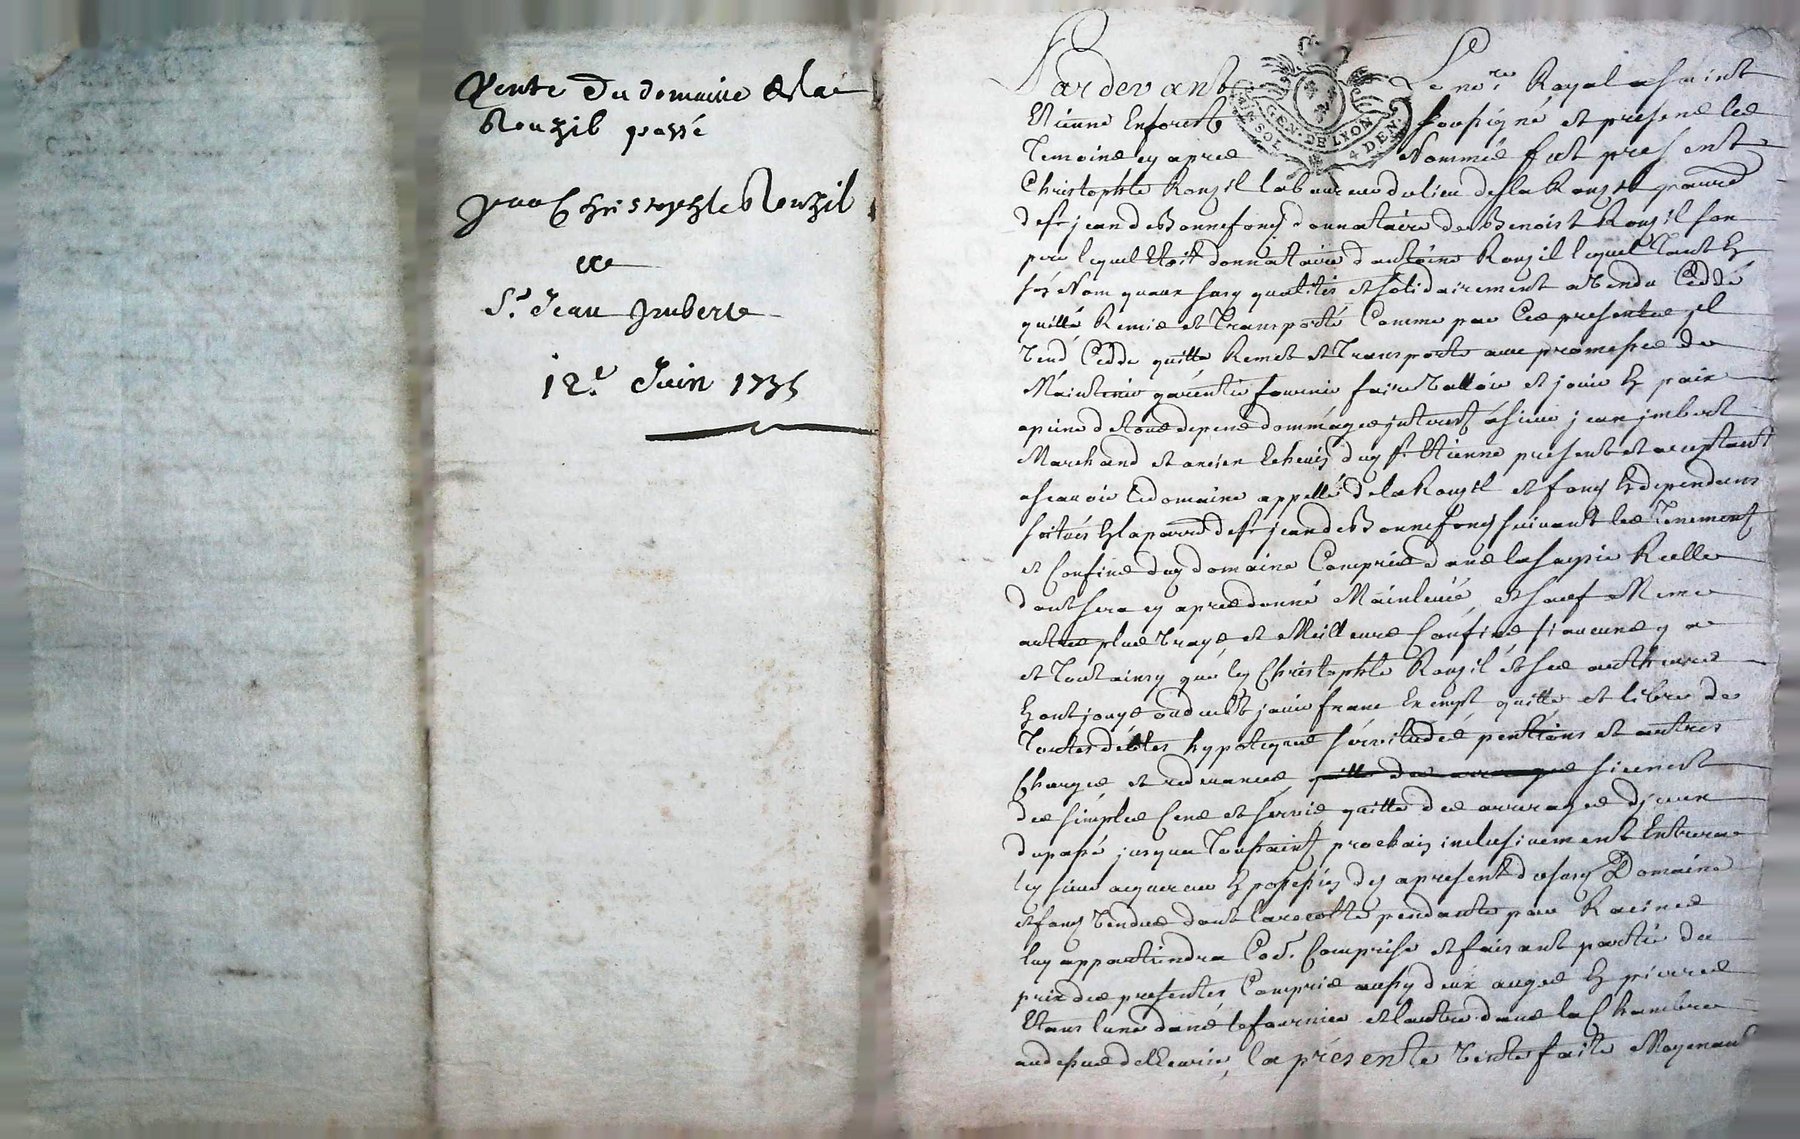 Vente du domaine de la
Rouzil passé
Jean Christophle Rouzil
a
Sr. Jean Jmbert
12e. Juin 1735
GEN. DE LYON
4 DEN.
Pardevant Le nore. Royal a Saint
Etienne Enforest soussigné et presens les
Temoins cy apres Nommés fut present
Christophle Rouzil laboureur du lieu de la Rouzil parroisse
de st jean de Bonnefonds donnataire de Benoist Rouzil son
pere lequel Etoit donnataire d'antoine Rouzil lequel tant En
son Nom qu'aux susd qualités et solidairement a Vendu Ceddé
quitté Remis et Transporté Comme par Ces presentes jl
Vend Cedde quitte Remet et Transporte avec promesse de
Maintenir garentir fournir faire Valloir et jouir En paix
a peine de tous depens dommages jnterests a sieur jean jmbert
Marchand et ancien Echevin dud St. Etienne present et acceptant
a scavoir le domaine appellé de la Rouzil et fonds En dependans
scitués En la parroisse de st jean de Bonnefonds suivant les Tenements
et Confins dud domaine Compris dans la saisie Reelle
dont sera cy apres donné Mainlevée, et sauf Memes
autres plus Vrays et Meilleurs Confins si aucuns y a
et Tout ainsy que led Christophle Rouzil et ses autheurs
En ont jouy ou deub jouir franc Exempt quitte et libre de
Toutes debtes hypoteques servitudes pentions et autres
Charges et redevances sinon
des simples Cens et servis quitte des arrerages d'jceux
du passé jusqu'a Toussaint prochain jnclusivement Entrera
led sieur acquereur En possession des a present dud Domaine
et fonds Vendus dont la recolte pendante par Racines
luy appartiendra Comprise et faisant partie du
prix des presentes Compris aussy deux auges En pierres
Etans l'une dans le fournier et l'autre dans la Chambre
au dessus de l'Ecurie, la presente Vente faite Moyenant